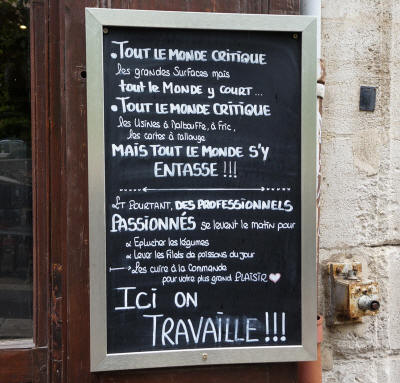 . TOUT LE MONDE CRITIQUE
les grandes Surfaces mais
tout le MONDE y COURT ...
. TOUT LE MONDE CRITIQUE
les Usines à Malbouffe, à Fric,
les cartes à rallonge
MAIS TOUT LE MONDE S'Y
ENTASSE !!!
Et POURTANT, DES PROFESSIONNELS
PASSIONNÉS se lèvent le matin pour
Eplucher les légumes
Lever les filets de poissons du jour
Les cuire à la Commande
pour votre plus grand PLAISIR
ICI ON
TRAVAILLE !!!